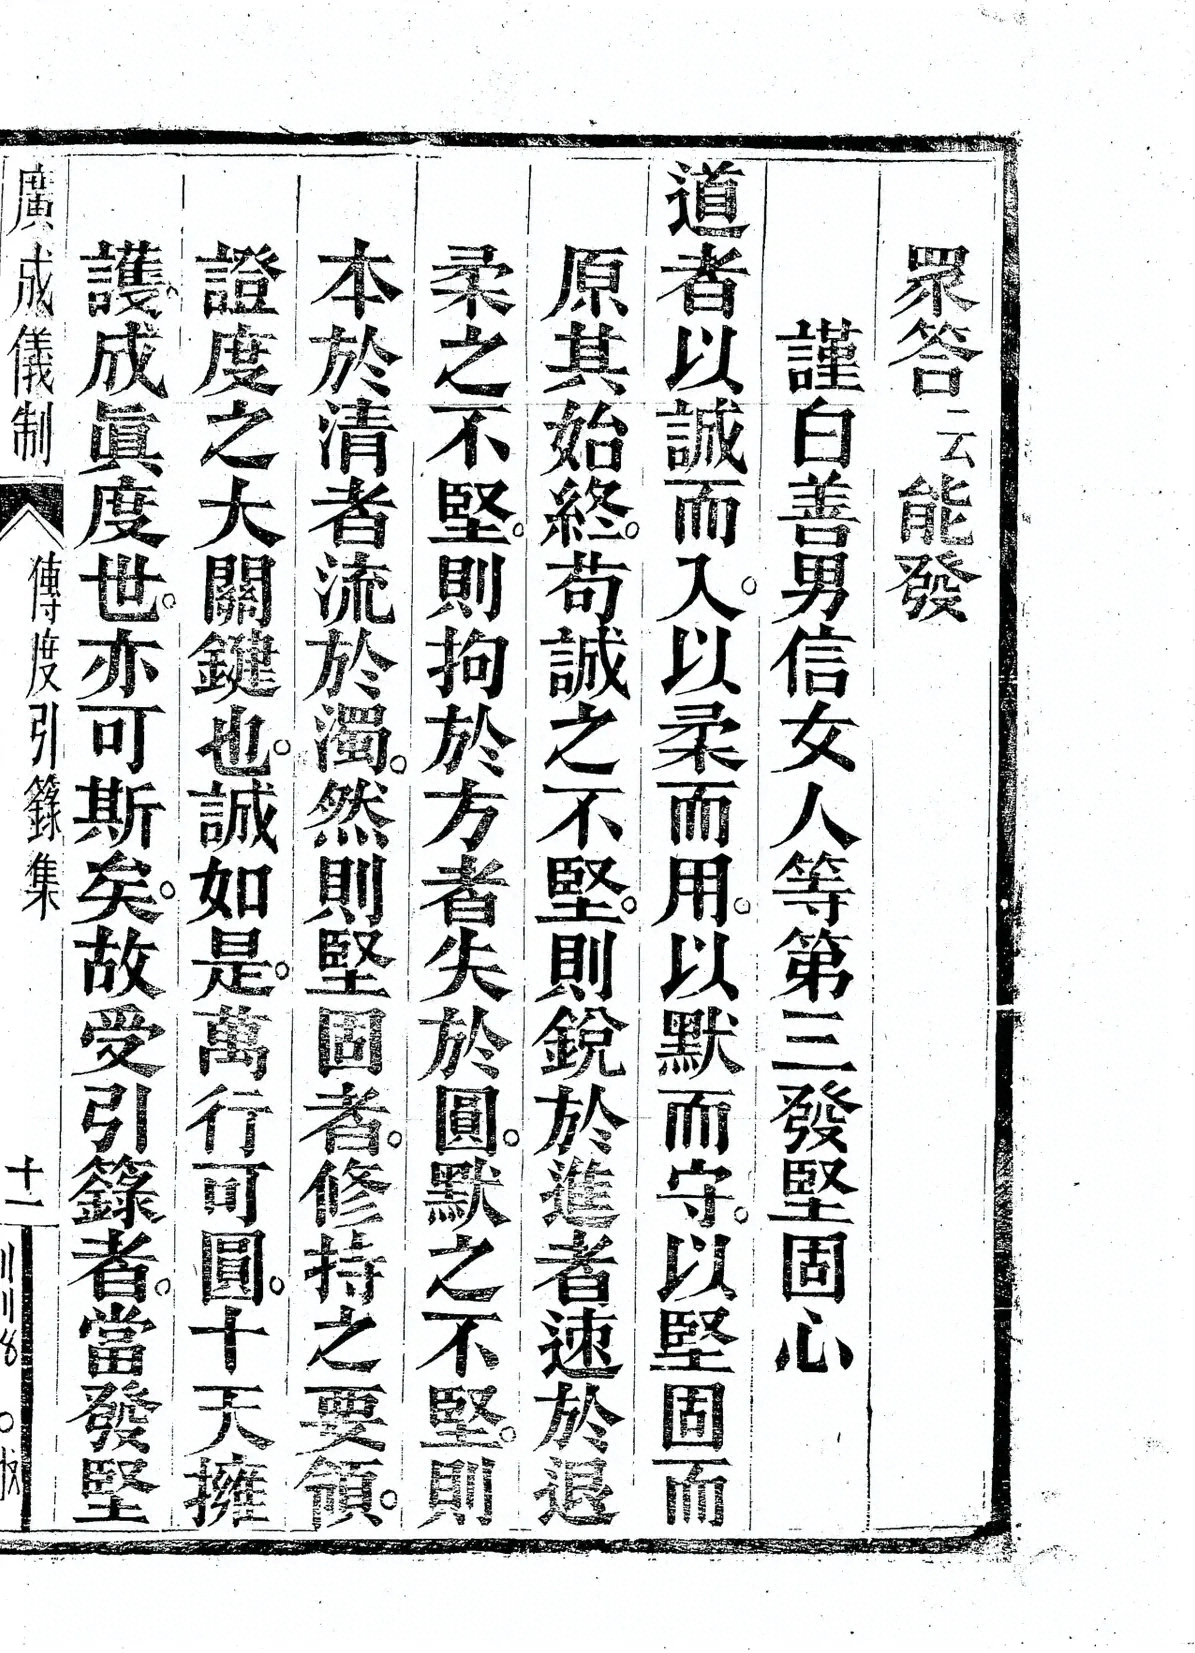 眾答云能發
謹白善男信女人等第三發堅固心
道者以誠而入。以柔而用。以默而守。以堅固而
原其始終。苟誠之不堅。則銳於進者速於退
柔之不堅。則拘於方者失於圓。默之不堅。則
本於清者流於濁。然則堅固者。修持之要領。
證度之大關鍵也。誠如是。萬行可圓。十天擁
護。成眞度世。亦可斯矣。故受引籙者。當發堅
廣成儀制
傳度引籙集
十一